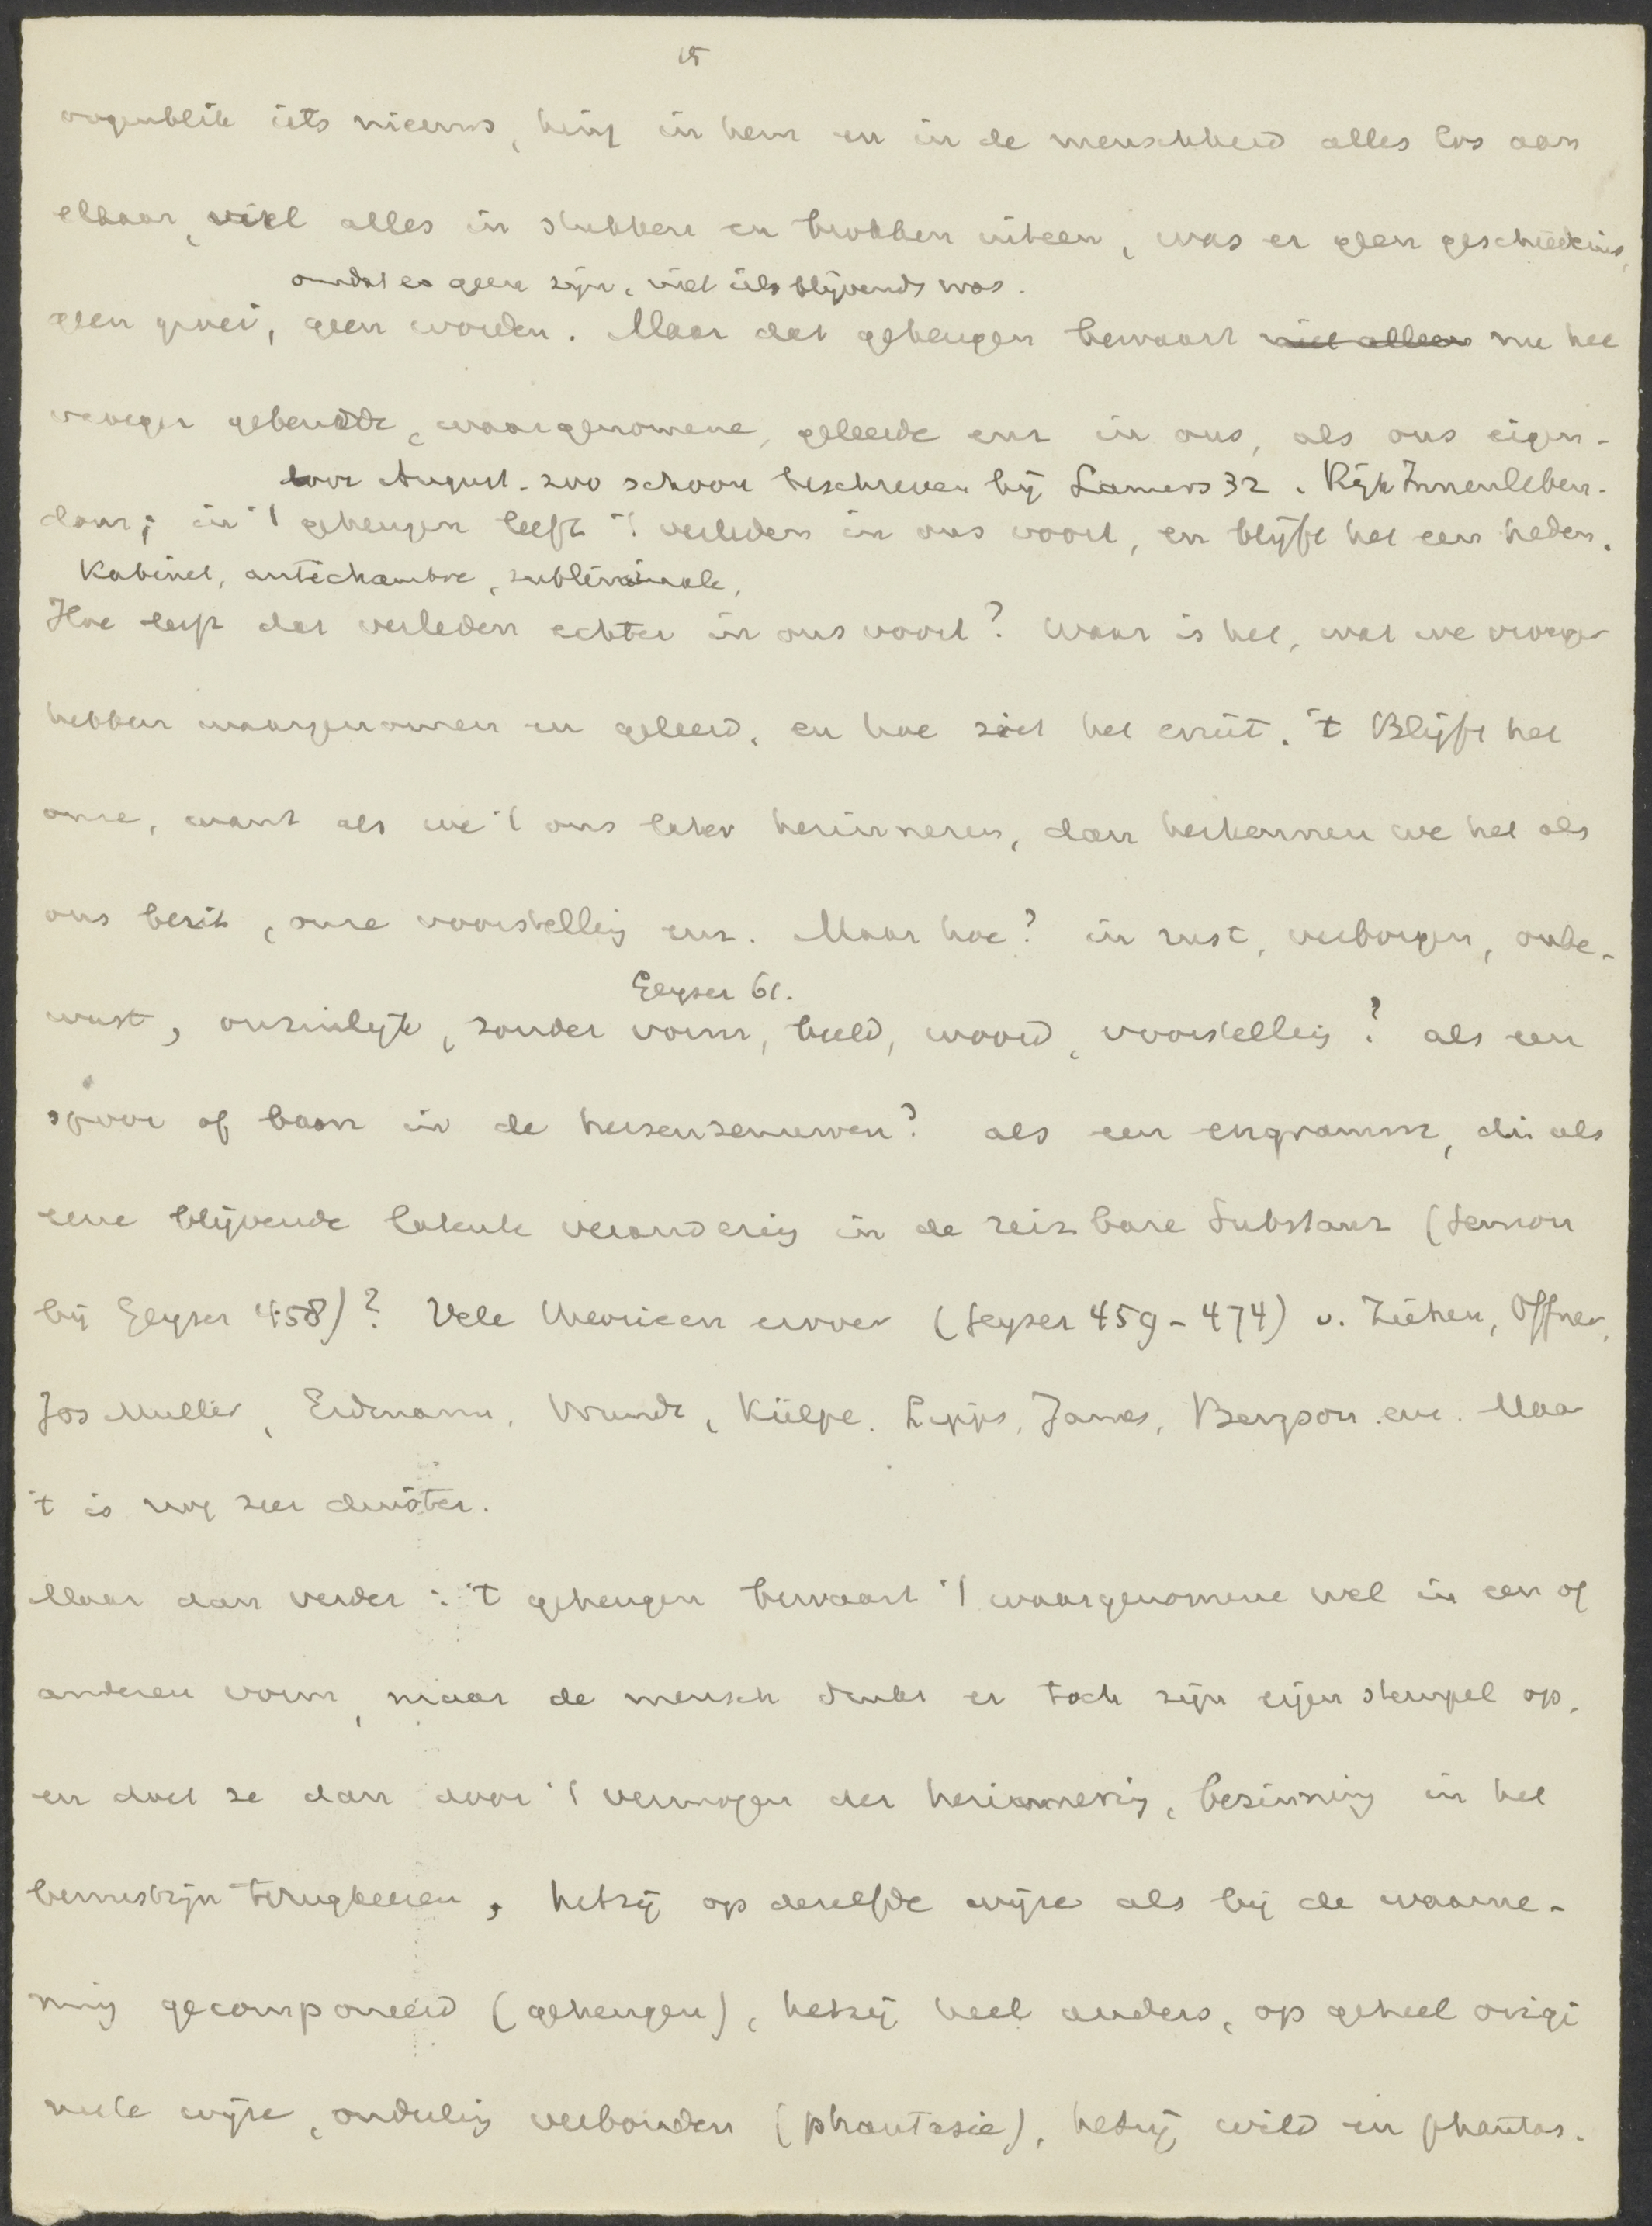 15
oogenblik iets nieuws, hing in hem en in de menschheid alles los aan
elkaar, viel alles in stukken en brokken uiteen, was er geen geschiedenis,
omdat er geen zijn, niet iets blijvends was.
geen groei, geen worden. Maar dat geheugen bewaart niet alleen nu het
vroeger gebeurde, waargenomene, geleerde enz in ons, als ons eigen-
door August. zoo schoon beschreven bij Lamers 32. Rijk Innenleben.
dom; in 't geheugen leeft 't verleden in ons voort, en blijft het een heden.
Kabinet, antichambre, subliminale,
Hoe leeft dat verleden echter in ons voort? Waar is het, wat we vroeger
hebben waargenomen en geleerd, en hoe ziet het eruit. 't Blijft het
onze, want als we 't ons later herinneren, dan herkennen we het als
ons bezit, onze voorstelling enz. Maar hoe? in rust, verborgen, onbe-
Geyser 61.
wust, onzinlijk, zonder vorm, beeld, woord, voorstelling? als een
spoor of baan in de hersenzenuwen? als een engramm, die als
eene blijvende latente verandering in de reizbare Substanz (Semon
bij Geyser 458)? Vele theorieen erover (Geyser 459-474) v. Ziehen, Offner,
Jos Muller, Erdmann, Wundt, Külpe, Lipps, James, Bergson. enz. Maar
't is nog zeer duister.
Maar dan verder: 't geheugen bewaart 't waargenomene wel in een of
anderen vorm, maar de mensch drukt er toch zijn eigen stempel op,
en doet ze dan door 't vermogen der herinnering, bezinning in het
bewustzijn terugkeeren, hetzij op dezelfde wijze als bij de waarne-
ming gecomponeerd (geheugen), hetzij heel anders, op geheel origi
neele wijze, onderling verbonden (phantasie), hetzij wild en phantas.